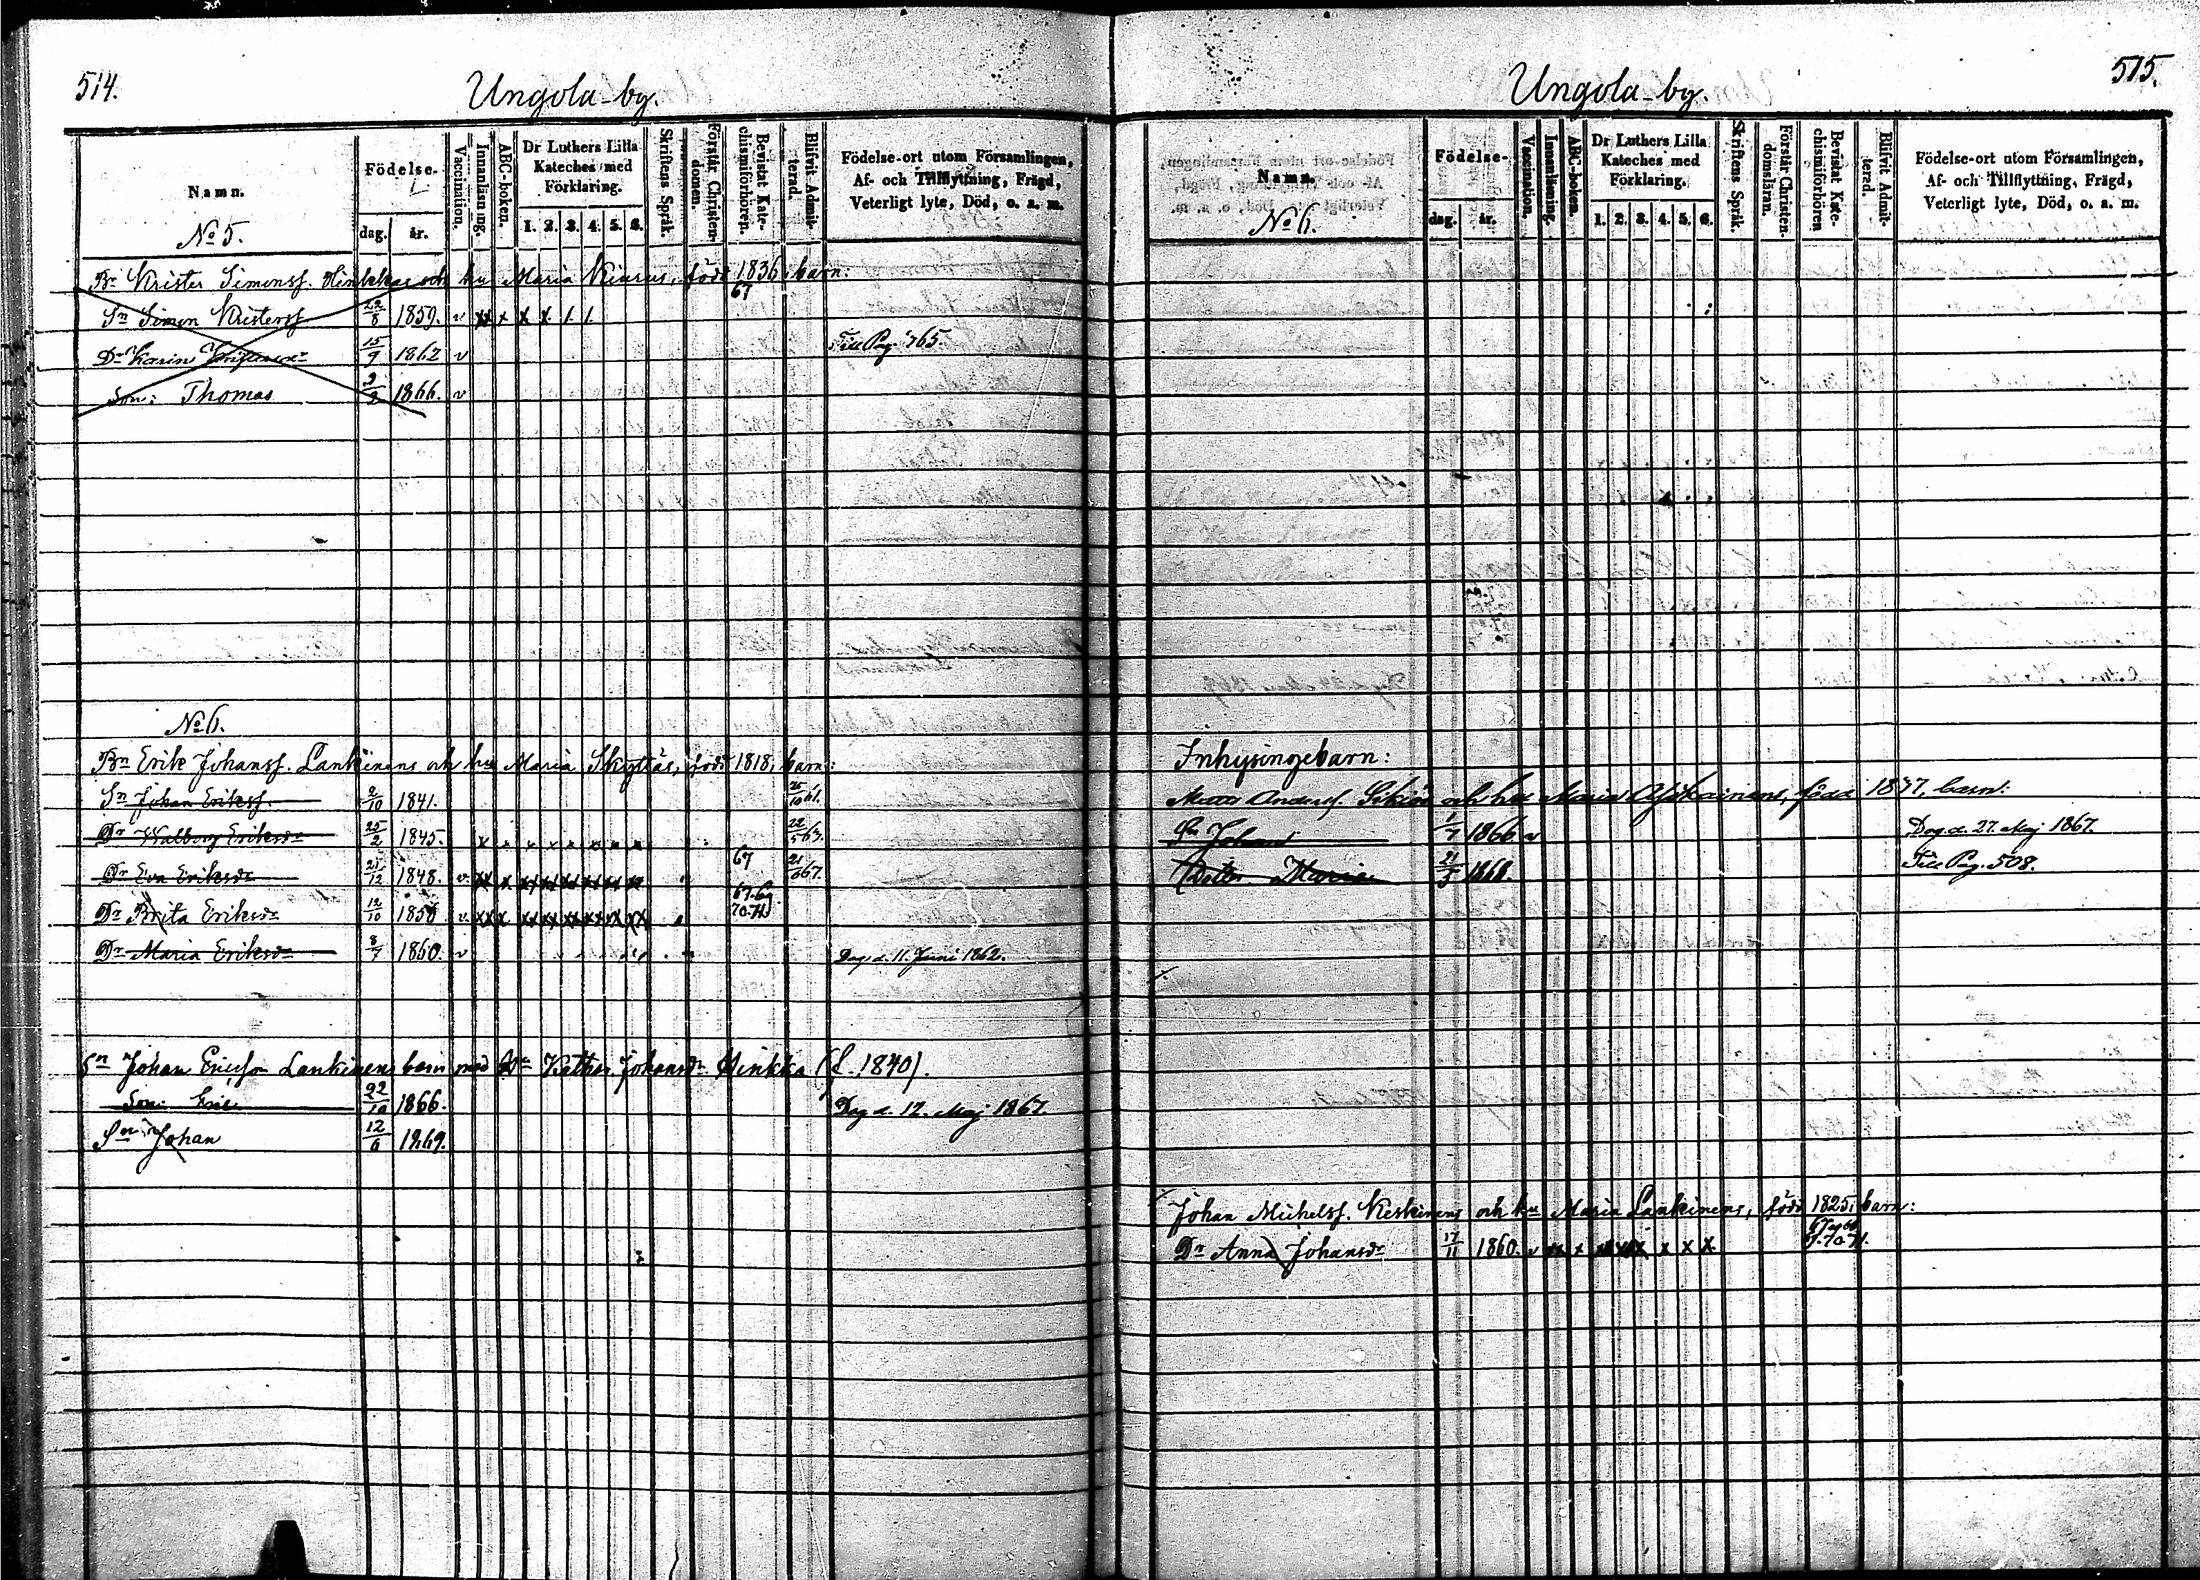 514.
Ungola-by.
Namn.
Födelse.
dag.
år.
Vaccination.
Innanläsning.
ABC-boken.
Dr Luthers Lilla
Kateches med
Förklaring.
1. 2. 3. 4. 5. 6.
Skriftens Språk.
Förstår Christen-
domen.
Bevistat Kate-
chismiförhören.
Blifvit Admit-
terad.
Födelse-ort utom Församlingen,
Af- och Tillflyttning, Frägd,
Veterligt lyte, Död, o. a. m.
No 5.
Bn Krister Simonss. Hinkkas och hu Maria Kiurus, född 1836, barn:
67
Sn Simon Kristerss 22/8 1859. v xx x x x / /
Dr Karin Kristersdr 15/9 1862 v Till Pag. 765.
Son: Thomas 9/2 1866. v
No 6.
Bn Erik Johanss. Lankinens och hu Maria Skyttäs, född 1818, barn:
Sn Johan Erikss. 2/10 1841. 25/10 61.
Dr Walborg Eriksdr 25/2 1845. 22/5 63.
Dr Eva Eriksdr 21/12 1848. v. 67 21/6 67.
Dr Brita Eriksdr 12/10 1856. v. 67.69 70.71
Dr Maria Eriksdr 8/7 1860. v Dog d. 11. Juni 1862.
Sn Johan Ericson Lankinens barn med Hu Kathar. Johansdr Hinkka (f. 1840).
Son: Eric 22/10 1866. Dog d. 12. Maj 1867.
Sn Johan 12/6 1869.
515.
Ungola-by.
Namn.
Födelse-
dag.
år.
Vaccination.
Innanläsning.
ABC-boken.
Dr Luthers Lilla
Kateches med
Förklaring.
1. 2. 3. 4. 5. 6.
Skriftens Språk.
Förstår Christen-
domsläran.
Bevistat Kate-
chismiförhören
Blifvit Admit-
terad.
Födelse-ort utom Församlingen,
Af- och Tillflyttning, Frägd,
Veterligt lyte, Död, o. a. m.
No 6.
Inhysingebarn:
Matts Anderss. Sikiö och hu Maria Asikainens, född 1837, barn:
Sn Johan 1/7 1866 v Dog d. 27. Maj 1867.
Dotter Maria 21/5 1868. Till Pag. 508.
Johan Michelss. Keskinens och hu Maria Lankinens, född 1825, barn:
Dr Anna Johansdr 17/11 1860. v xx x